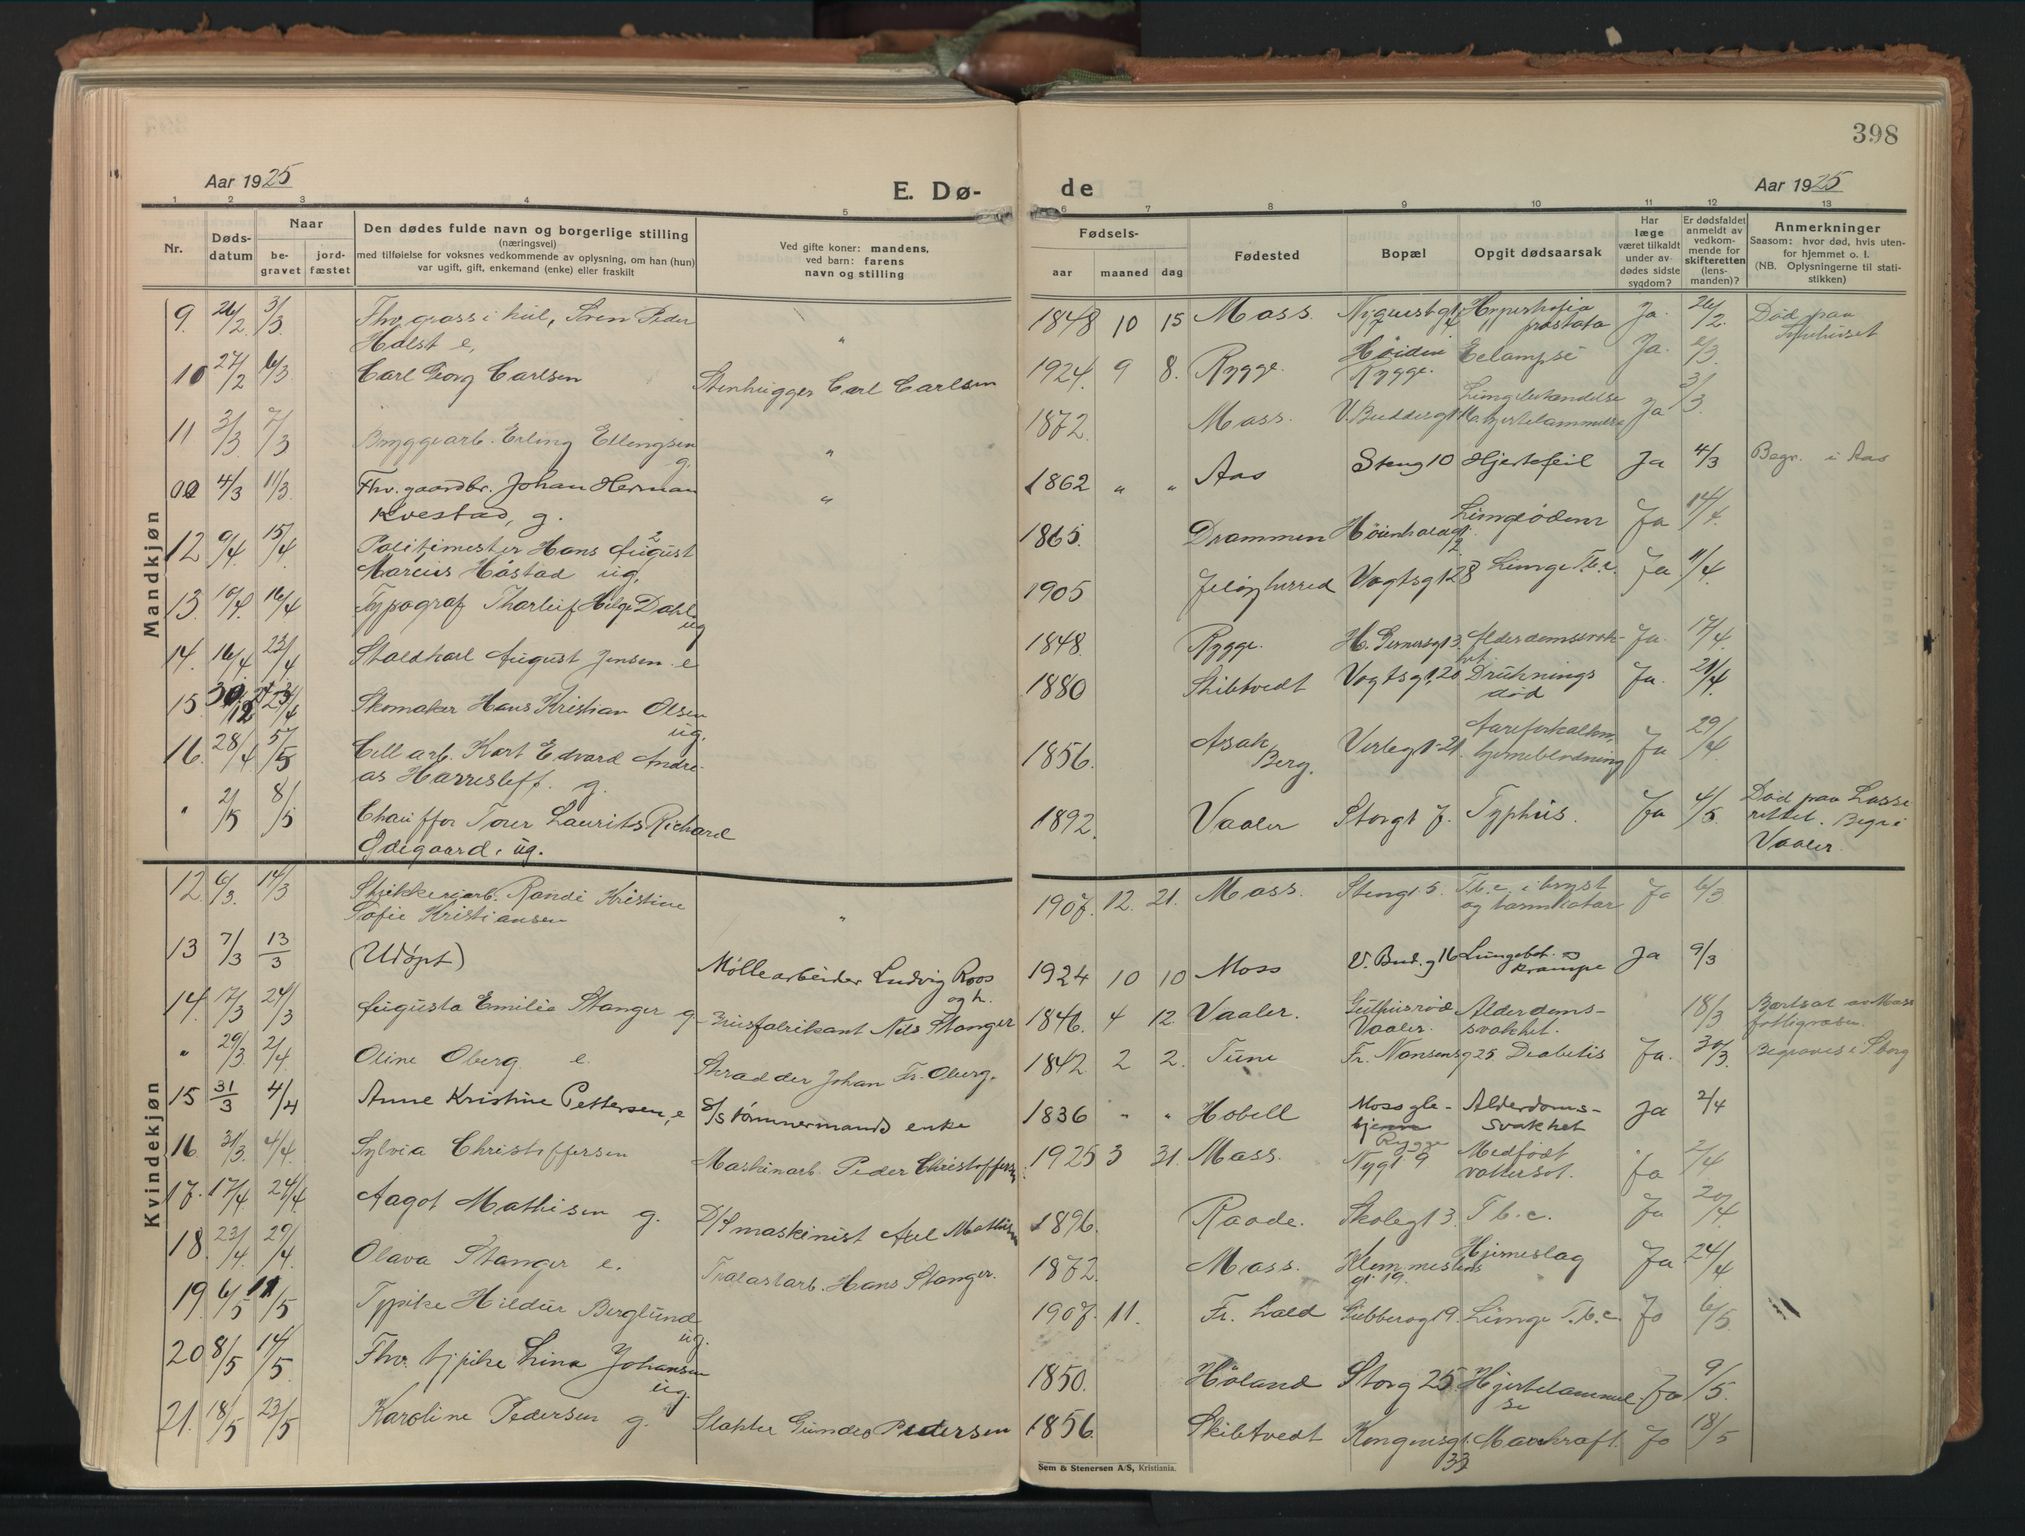 398
Aar 1925
E. Dø-
de
Aar 1925
1 2 3 4 5 6 7 8 9 10 11 12 13
Nr.
Døds-
datum
Naar
be-
gravet
jord-
fæstet
Den dødes fulde navn og borgerlige stilling
(næringsvei)
med tilføielse for voksnes vedkommende av oplysning, om han (hun)
var ugift, gift, enkemand (enke) eller fraskilt
Ved gifte koner: mandens,
ved barn: farens
navn og stilling
Fødsels-
aar maaned dag
Fødested
Bopæl
Opgit dødsaarsak
Har
læge
været tilkaldt
under av-
dødes sidste
sygdom?
Er dødsfaldet
anmeldt av
vedkom-
mende for
skifteretten
(lens-
manden)?
Anmerkninger
Saasom: hvor død, hvis uten-
for hjemmet o. l.
(NB. Oplysningerne til stati-
stikken)
Mandkjøn
9. 26/2 3/3 Fhv. gross i hül, Sven Peder
Holst e, " 1848 10 15 Moss. prostata Ja. 26/2 Død paa
10 27/2 6/3 Carl Georg Carlsen Stenhugger Carl Carlsen 1924. 9 8. Rygge. Rygge. Eclampsi Ja. 2/3
11 3/3 7/3 Bryggearb. Erling Ellengsen
g. " 1872. Moss. Ja 3/3.
4/3 11/3 Fhv. gaardbr. Johan Herman
Kvestad, g. " 1862 " " Aas Steng 10 Hjertefeil Ja 4/3 Begr. i Aas
12 9/4 15/4 Politimester Hans August
Marcus Håstad üg. 1865. Drammen Ja 14/4.
13. 10/4 16/4 Typograf Thorleif Helge Dahl
üg 1905 Jeløy herred Vogtsgt 28 Lunge Tb.c. Ja 11/4
14. 16/4 23/4 Staldkarl August Jensen e 1848. Rygge. Alderdomssvak-
het Ja. 17/4
15. Skomaker Hans Kristian Olsen
üg. 1880 Skibtvedt Vogtsgt. 20 Druknings
død Ja. 21/4
16. 28/4 Cell arb. Kart Edvard Andre-
as Harresleff. g. 1856. Asak
Berg. Verlegt. 21. hjerneblødning Ja 29/4
" 2/5 8/5 Chauffør Torer Laurits Richard
Ødegaard. üg. 1892. Vaaler Storgt 7. Typhüs. Ja 4/5 Død paa Lassa
rettet. Begr i
Vaaler.
Kvindekjøn
12. 6/3. 14/3 Strikkerarb. Randi Kristine
Sofie Kristiansen " 1907. 12. 21. Moss. Stengt 5. Tb.c. i bryst
og tarmkatar Ja 6/3
13 7/3 13/3 (Udøpt) Møllearbeider Ludvig Roos
og h. 1924 10 10 Moss V. Bud.g 16 Lungebet. og
Krampe Ja 9/3
14. 17/3 24/3 Augusta Emilie Stanger g. Brusfabrikant Nils Stanger 1846. 4 12. Vaaler. Vaaler. Alderdoms-
svakhet. 18/3
" 29/3 2/4 Oline Oberg e. Skrædder Johan Fr. Oberg. 1842. 2 2. Tüne Fr. Nansensg 25. Diabetis Ja. 30/3 Begraves i S.borg
15 31/3 4/4 Anne Kristine Pettersen, e S/S tømmermands enke 1836 " " Hobøll Mossgle-
Rygge Alderdoms-
svakhet Ja 2/4
16. 31/3. 4/4. Sylvia Christoffersen Maskinarb. Peder Christoffersen 1925 3 31. Moss. Nygt 9 Medfødt
vattersot. Ja 2/4
17. 17/4 24/4 Aagot Mathisen g. D/S maskinist Axel Mathisen 1896. Raade. Skolegt 3. Tb.c. Ja 20/4
18. 23/4. 29/4. Olava Stanger e. Trælastarb. Hans Stanger. 1872. Moss. Klemmestens
gt. 19. Hjerneslag Ja 24/4
19. 6/5 11/5 Typike Hildur Berglund
üg. 1907. 11. Fr. hald Gubberogt 19. Lunge T.b.c. Ja 6/5
20 8/5 14/5 Fhv. typike Lina Johansen
üg. 1850. Høland Storg 25 Hjertelammel-
se Ja 9/5.
21. 18/5 23/5 Karoline Pedersen g. Slakter Gunder Pedersen 1856 Skibtvedt Kongensgt.
33 Mavekræft. Ja 18/5
Sem & Stenersen A/S, Kristiania.